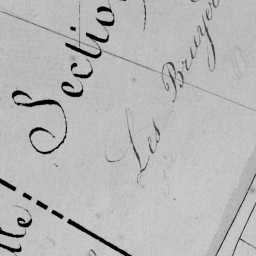 Section
Les Bruyè
lle